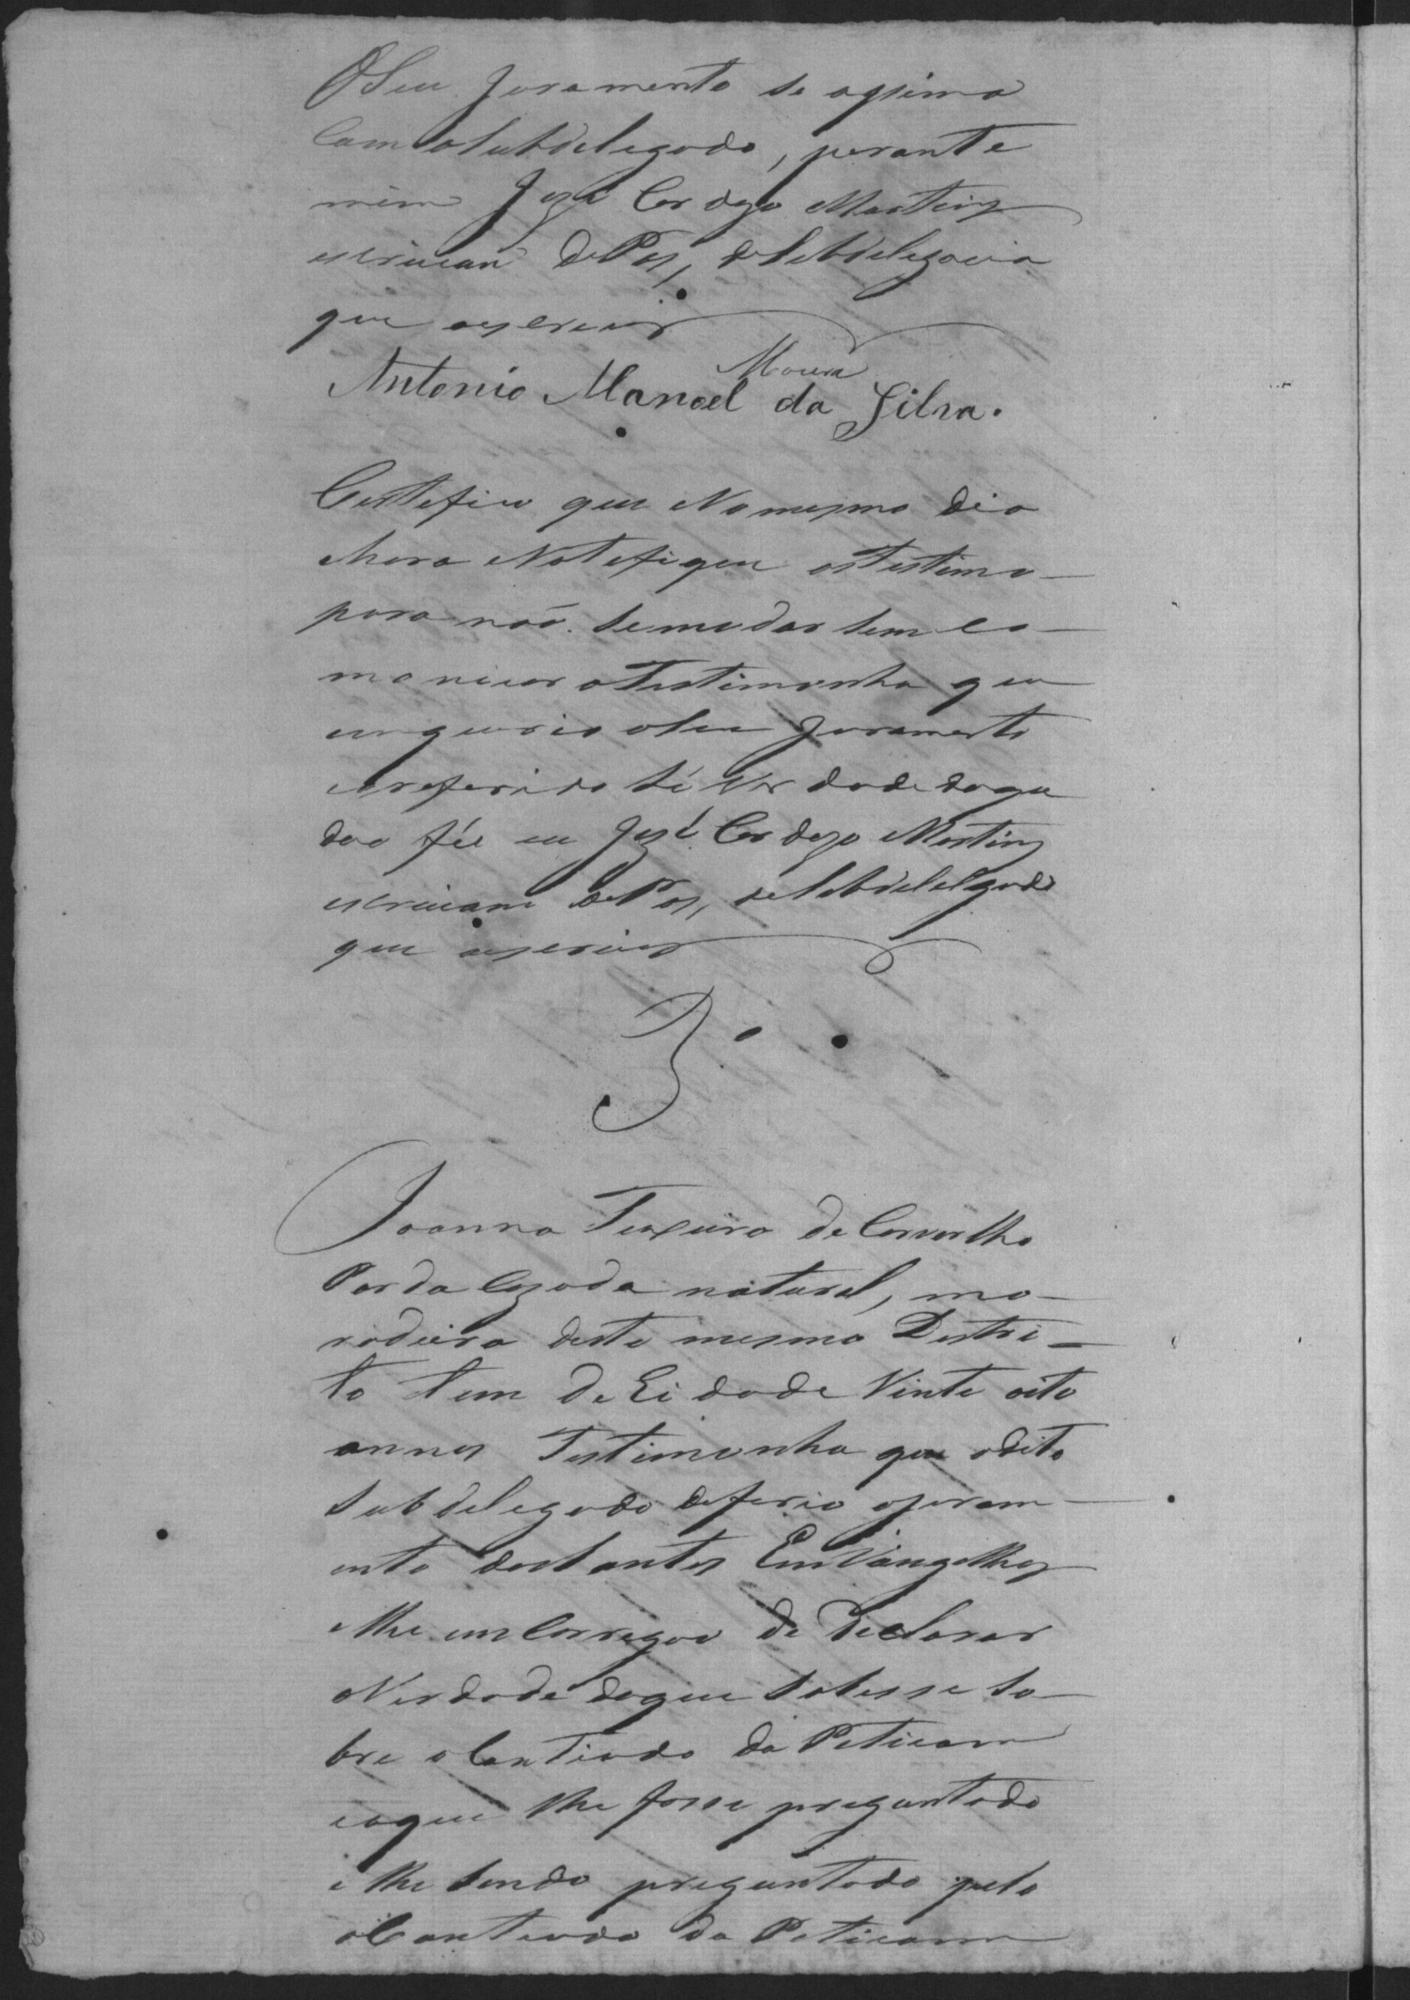 O Seu Juramento se assina
Com o Subdelegado, perante
mim José Cardozo Martins
escrivam de Paz, de Subdelegacia
que escrevi
Moura
Antonio Manoel da Silva.
Certefico que No mesmo dia
ehora Notefiquei a Testimo-
para não se mudar sem co-
monicar a Testimonha que
o seu Juramento
eoreferido hé Verdade doque
dou fée eu José Cardozo Martins
escrivam de Paz, de Subdelegado
que escrevi
3ª
Joanna Teixeira de Carvalho
Parda Cazada natural, mo-
radeira deste mesmo Destri-
to tem de Eidade Vinte oito
annos Testimonha que odito
Subdelegado deferio ojuram-
ento dos Santos Envangelhos
elhe encarregou de Declarar
aVerdade doque Sobesse so-
bre o Contiudo da Peticam
eoque lhe fosse preguntado
elhe sendo preguntado pelo
o Conteudo da Peticam